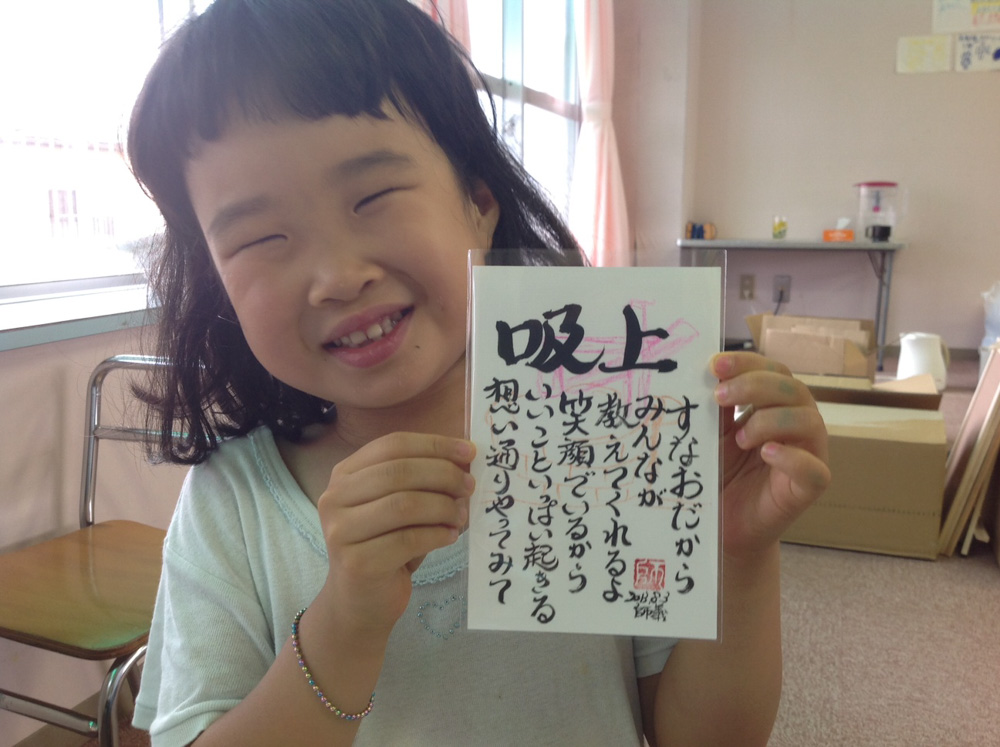 吸上
すなおだから
みんなが
教えてくれるよ
笑顔でいるから
いいっといっぱい起きる
想い通りやってみて
2013.8.3